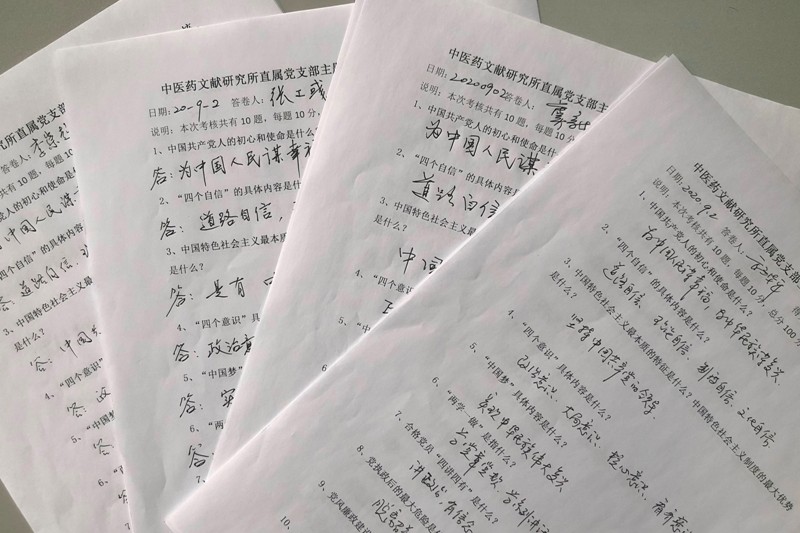 究所直属党支部
答卷人：
共有10题，每题10
产党人的初心和使命是
中国人民谋
四个自信”的具体内容
答 道路自信
3、中国特色社会主义最
是什么？
答：中国
4、“四个意
答：
5、“中国
答：
6、
中医药文献研究所直属党支部主
日期：20-9-2 答卷人：张工彧
说明：本次考核共有10题，每题10分
1、中国共产党人的初心和使命是什么
答：为中国人民谋幸福
2、“四个自信”的具体内容是什
答：道路自信，
3、中国特色社会主义最本质
是什么？
答：是有
4、“四个意识”具
答：政治意
5、“中国梦
答：实
6、“两
答
中医药文献研究所直属党支部主
日期：20200902 答卷人：
说明：本次考核共有10题，每题10分
1、中国共产党人的初心和使命是什么
为中国人民谋
2、“四个自信”的具体内容
道路自信
3、中国特色社会主义最
是什么？
中国
4、“四个意
5、“中
6
中医药文献研究所直属党支部主
日期：2020 9.2 答卷人：
说明：本次考核共有10题，每题10分，总分100
1、中国共产党人的初心和使命是什么？
为中国人民谋幸福，为中华民族谋复兴
2、“四个自信”的具体内容是什么？
道路自信、理论自信、制度自信、文化自信
3、中国特色社会主义最本质的特征是什么？中国特色社会主义制度的最大优势
是什么？
坚持中国共产党的领导
4、“四个意识”具体内容是什么？
政治意识、大局意识、核心意识、看齐意
5、“中国梦”具体内容是什么？
实现中华民族伟大复兴
6、“两学一做”是指什么？
学党章党规、学系列讲话
7、合格党员“四讲四有”是什么？
讲政治有信念
8、党执政后的最大危险是什
脱离
9、党风廉政建设
10、